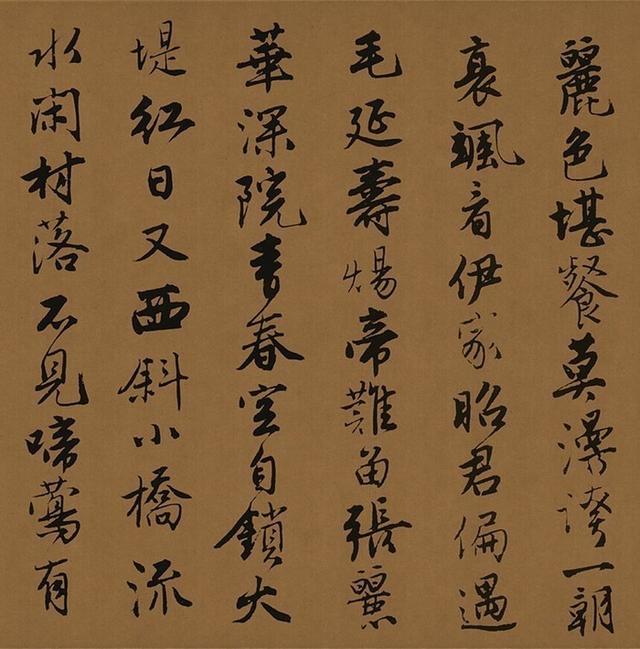 麗色堪餐莫漫誇一朝
衰颯看伊家昭君偏遇
毛延壽煬帝難留張麗
華深院青春空自鎖大
堤紅日又西斜小橋流
水閑村落不見啼鶯有